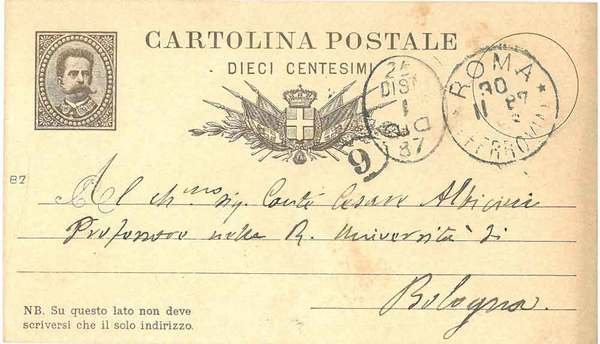 CARTOLINA POSTALE
DIECI CENTESIMI
ROMA
30
11 87
FERROVIA
25
DIS
1
87
6
82
Al ch.mo sig. Conte Cesare Albicini
Professore nella R. Università di
Bologna.
NB. Su questo lato non deve
scriversi che il solo indirizzo.